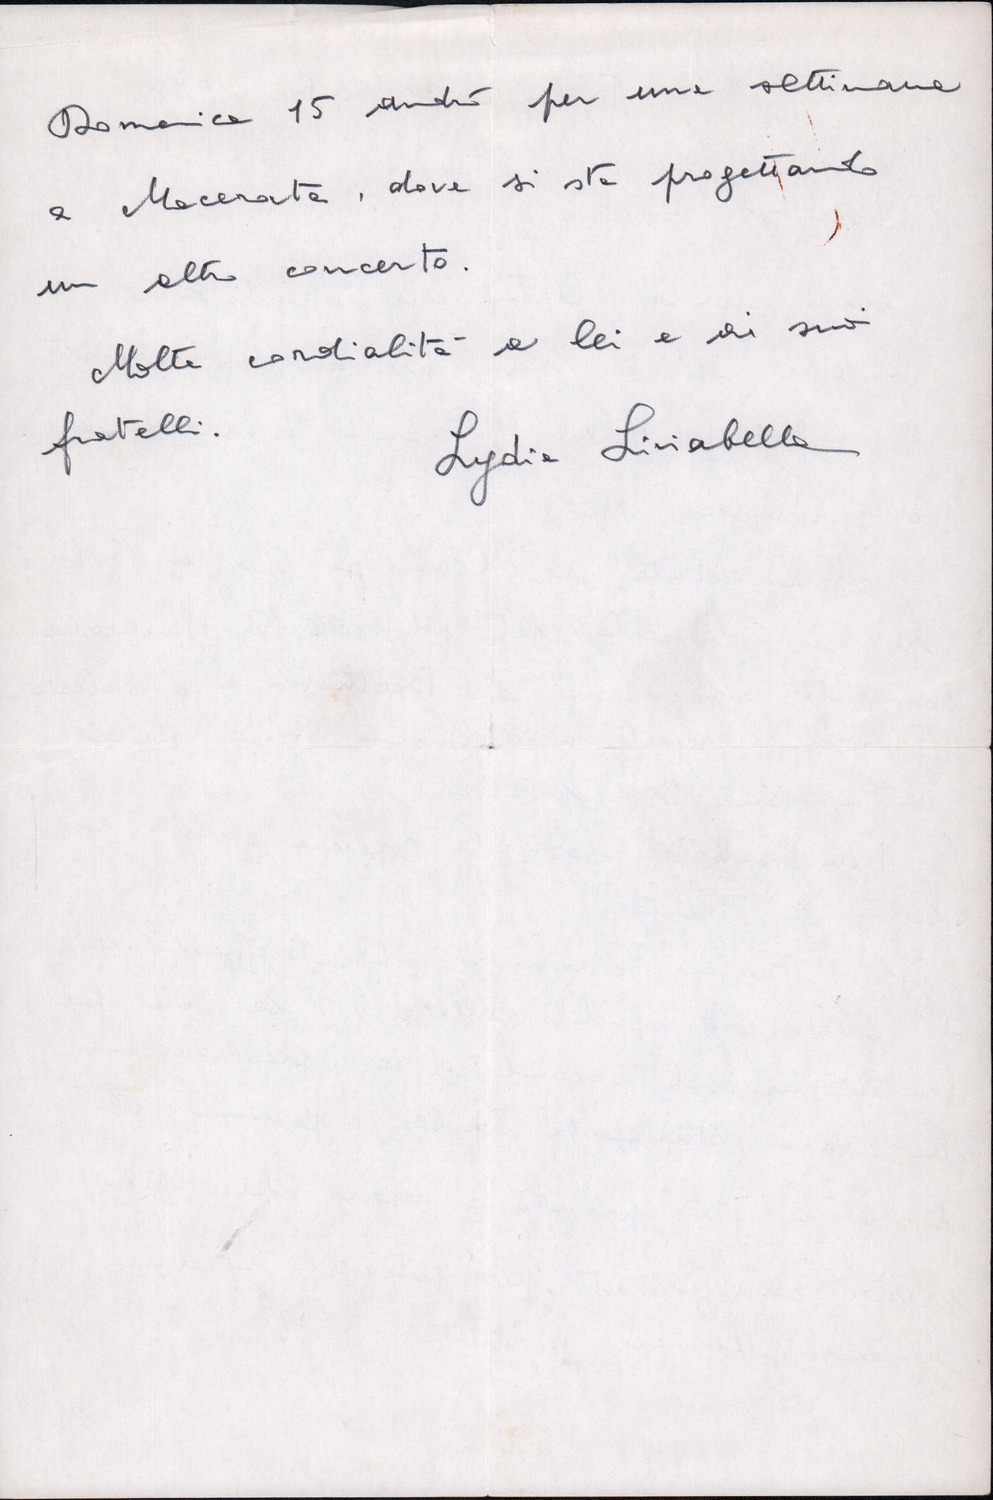 Domenica 15 andrò per una settimana
a Macerata, dove si sta progettando
un altro concerto.
Molte cordialità a lei e ai suoi
fratelli.
Lydia Liviabella